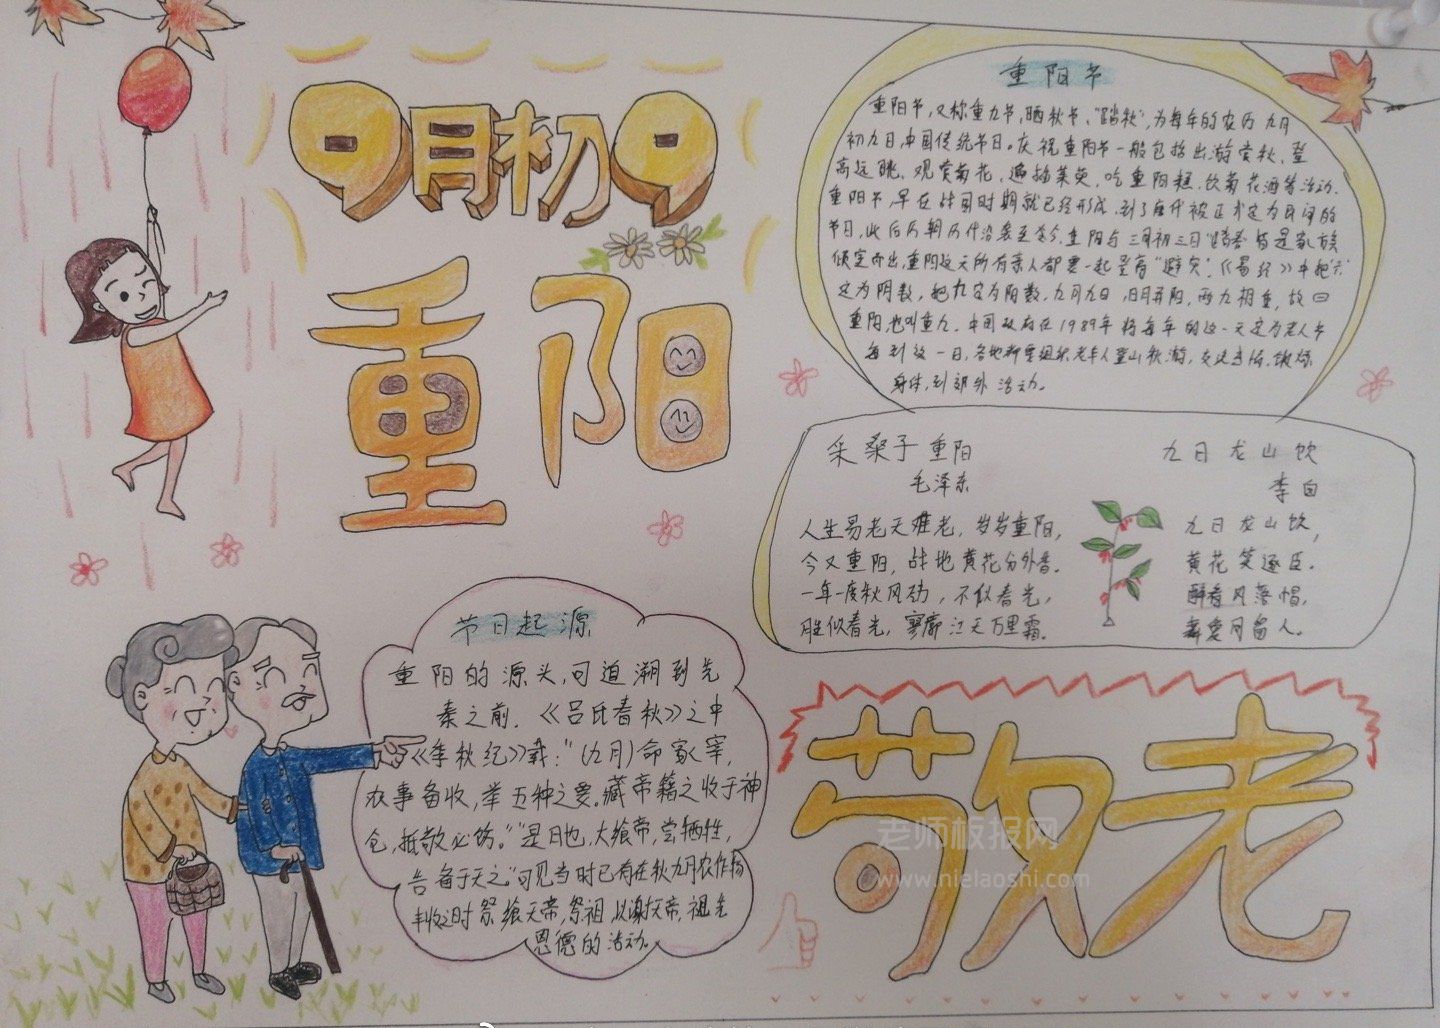 9月初9
重阳
重阳节
重阳节,又称重九节,晒秋节、“踏秋”,为每年的农历九月
初九日,中国传统节日。庆祝重阳节一般包括出游赏秋,登
高远眺,观赏菊花,遍插茱萸,吃重阳糕,饮菊花酒等活动.
重阳节,早在战国时期就已经形成,到了唐代被正式定为民间的
节日,此后历朝历代沿袭至今.重阳与三月初三日“踏春”皆是家族
倾室而出,重阳这天所有亲人都要一起登高“避灾”.《易经》中把“六”
定为阴数,把九定为阳数,九月九日,日月并阳,两九相重,故曰
重阳,也叫重九.中国政府在1989年将每年的这一天定为老人节
每到这一日,各地都要组织老年人登山秋游,交流感情,锻炼
身体,到郊外活动。
采桑子重阳
毛泽东
人生易老天难老,岁岁重阳,
今又重阳,战地黄花分外香.
一年一度秋风劲,不似春光,
胜似春光,寥廓江天万里霜.
九日龙山饮
李白
九日龙山饮,
黄花笑逐臣.
醉看风落帽,
舞爱月留人.
节日起源
重阳的源头,可追溯到先
秦之前.《吕氏春秋》之中
《季秋纪》载:“(九月)命家宰,
农事备收,举五种之要.藏帝籍之收于神
仓,祗敬必饬。”“是月也,大飨帝,尝牺牲,
告备于天之.”可见当时已有在秋九月农作物
丰收之时祭飨天帝,祭祖,以谢天帝,祖先
恩德的活动。
敬老
老师板报网
www.nielaoshi.com